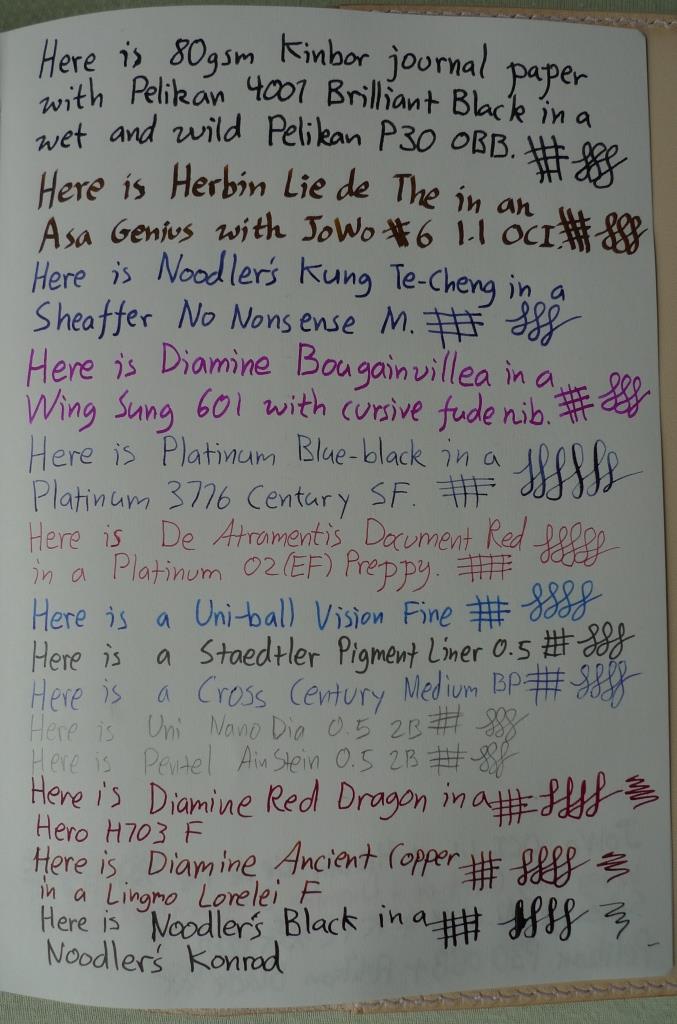 Here is 80gsm Kinbor journal paper
with Pelikan 4001 Brilliant Black in a
wet and wild Pelikan P30 OBB.
Here is Herbin Lie de The in an
Asa Genius with JoWo #6 1.1 OCI.
Here is Noodler's Kung Te-Cheng in a
Sheaffer No Nonsense M.
Here is Diamine Bougainvillea in a
Wing Sung 601 with cursive fude nib.
Here is Platinum Blue-black in a
Platinum 3776 Century SF.
Here is De Atramentis Document Red
in a Platinum 02(EF) Preppy.
Here is a Uni-ball Vision Fine
Here is a Staedtler Pigment Liner 0.5
Here is a Cross Century Medium BP
Here is Uni Nano Dia 0.5 2B
Here is Pentel Ain Stein 0.5 2B
Here is Diamine Red Dragon in a
Hero H703 F
Here is Diamine Ancient Copper
in a Lingmo Lorelei F
Here is Noodler's Black in a
Noodler's Konrad